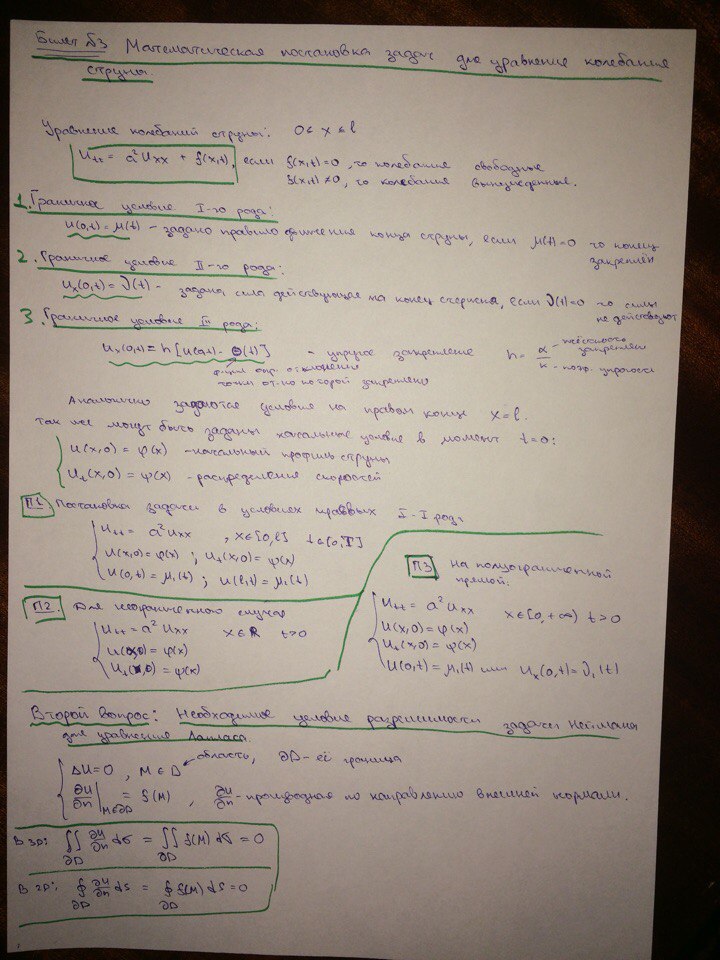 Билет №3 Математическая постановка задач для уравнение колебания
струны.
Уравнение колебаний струны: 0 ≤ x ≤ l
Utt = a²Uxx + f(x,t), если f(x,t)=0, то колебания свободные
f(x,t)≠0, то колебания вынужденные.
1. Граничное условие I-го рода:
U(0,t)=μ(t) - задано правило движения конца струны, если μ(t)=0 то конец
закреплён
2. Граничное условие II-го рода:
Ux(0,t)=ν(t) - задана сила действующая на конец стержня, если ν(t)=0 то силы
не действуют
3. Граничное условие III рода:
Ux(0,t)=h[U(0,t)-Θ(t)] - упругое закрепление h=α/k - жёсткость закрепления - коэф. упругости
точки от-но которой закреплено
Аналогично задаются условия на правом конце x=l.
так же могут быть заданы начальные условия в момент t=0:
U(x,0)=φ(x) - начальный профиль струны
Ut(x,0)=ψ(x) - распределение скоростей
П1. Постановка задачи в условиях I-I рода
Utt = a²Uxx, x∈[0,l] t∈[0,T]
U(x,0)=φ(x); Ut(x,0)=φ(x)
U(0,t)=μ₁(t); U(l,t)=μ₂(t)
П2. Для неограниченного случая
Utt=a²Uxx x∈R t>0
U(x,0)=φ(x)
Ut(x,0)=ψ(x)
П3. На полуограниченной
прямой.
Utt=a²Uxx x∈[0,+∞) t>0
U(x,0)=φ(x)
Ut(x,0)=ψ(x)
U(0,t)=μ₁(t) или Ux(0,t)=ν₁(t)
Второй вопрос: Необходимое условие разрешимости задачи Неймана
для уравнение Лапласа.
ΔU=0, M∈D область, ∂D - её граница
∂U/∂n|M∈∂D = f(M), ∂U/∂n - производная по направлению внешней нормали.
В 3D: ∬∂D ∂U/∂n dσ = ∬∂D f(M)dσ = 0
В 2D: ∮∂D ∂U/∂n ds = ∮∂D f(M)ds=0